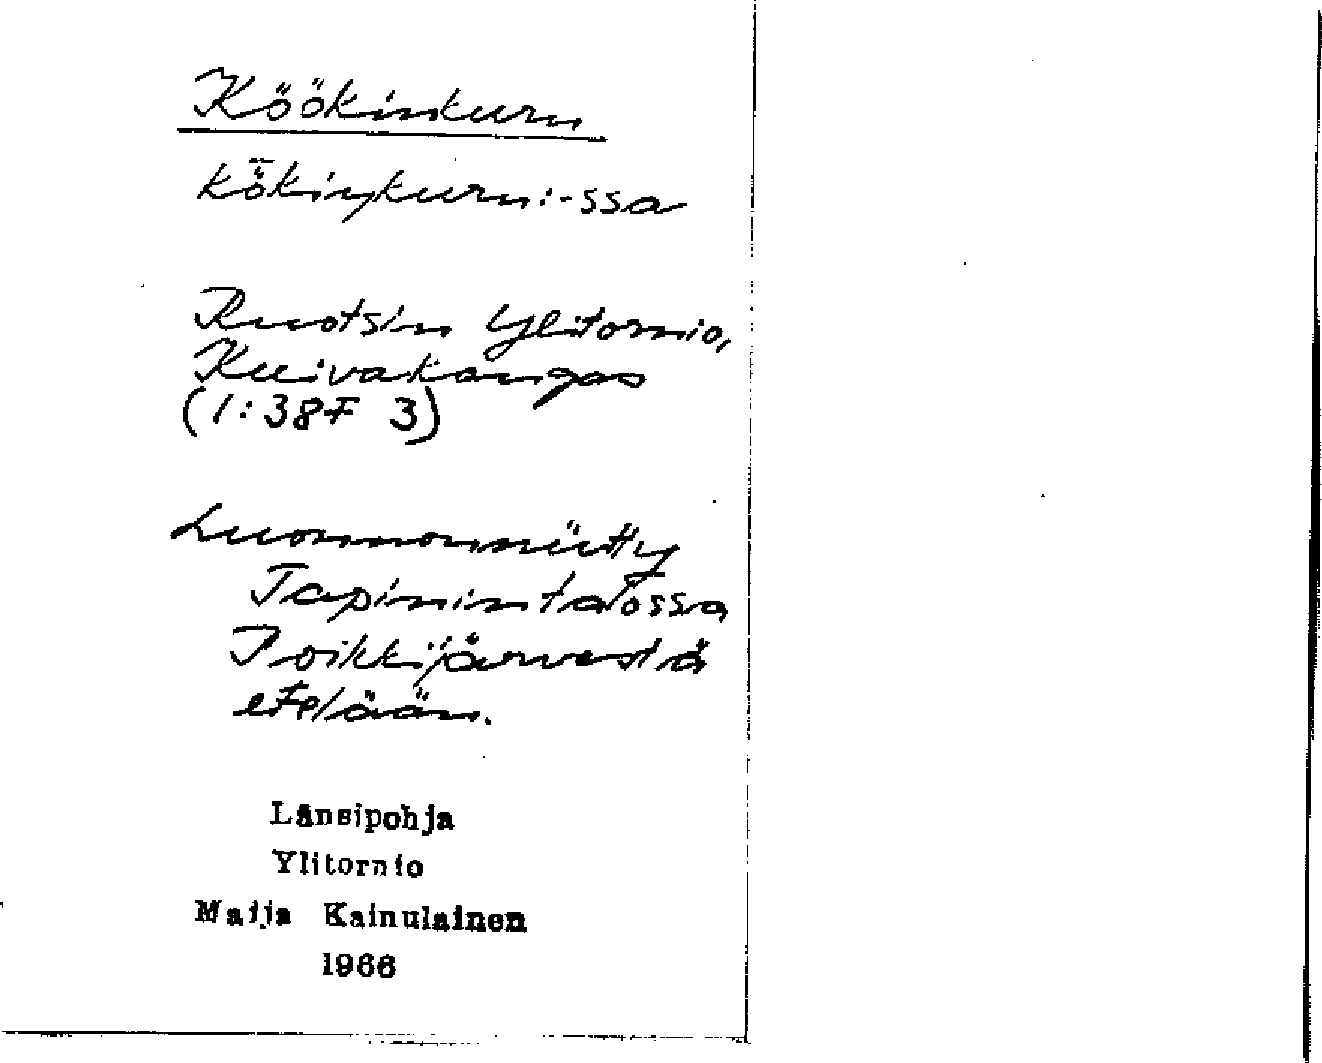 Köökinkuru
kȫkiŋkuru:-ssa
Ruotsin Ylitornio,
Kuivakangas
(1:387 3)
Luonnonniitty
Tapinintalossa
Poikkijärvestä
etelään.
Länsipohja
Ylitornio
Maija Kainulainen
1966